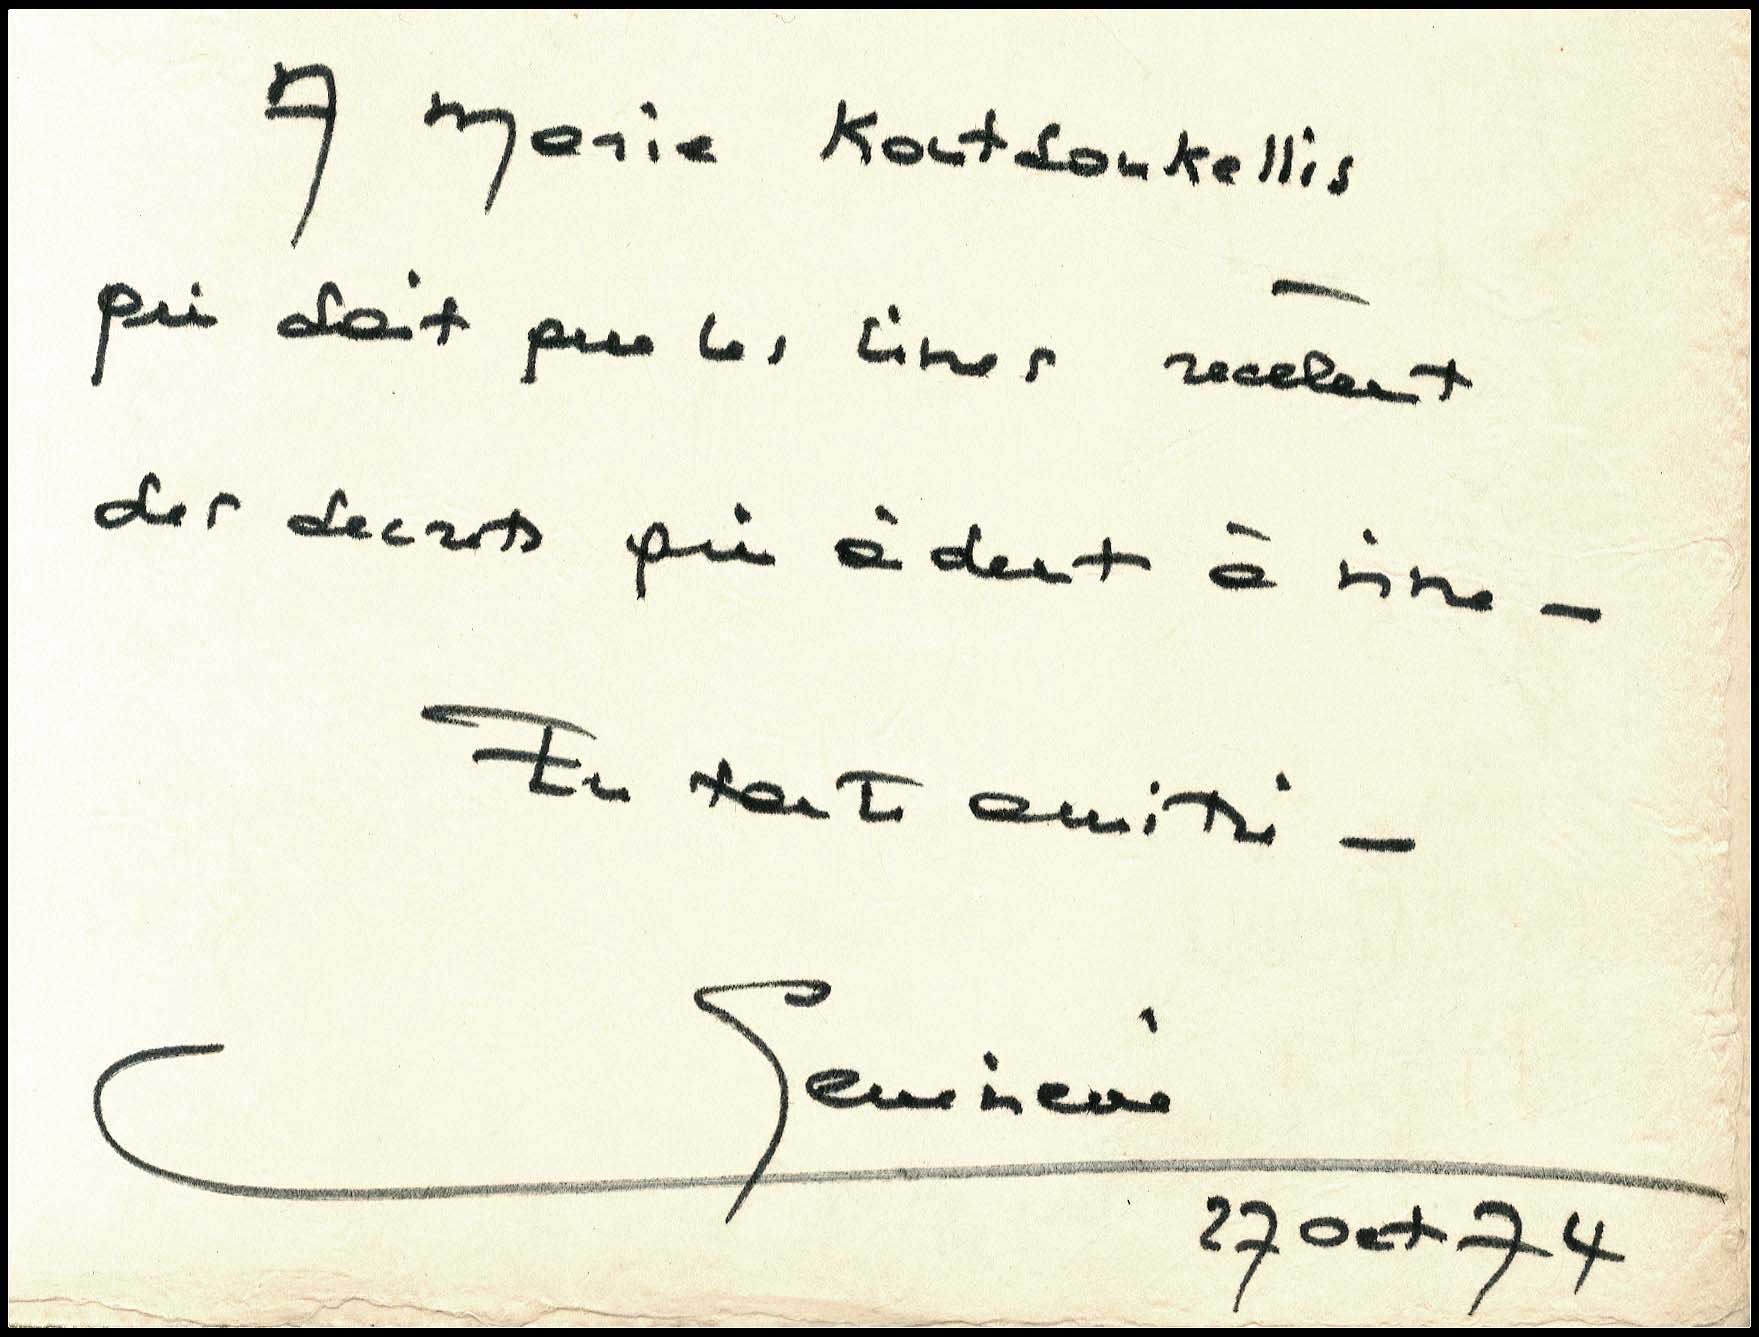 A Marie Koutsoukellis
qui sait que les livres recèlent
des secrets qui aident à vivre -
En toute amitié -
27 Oct 74